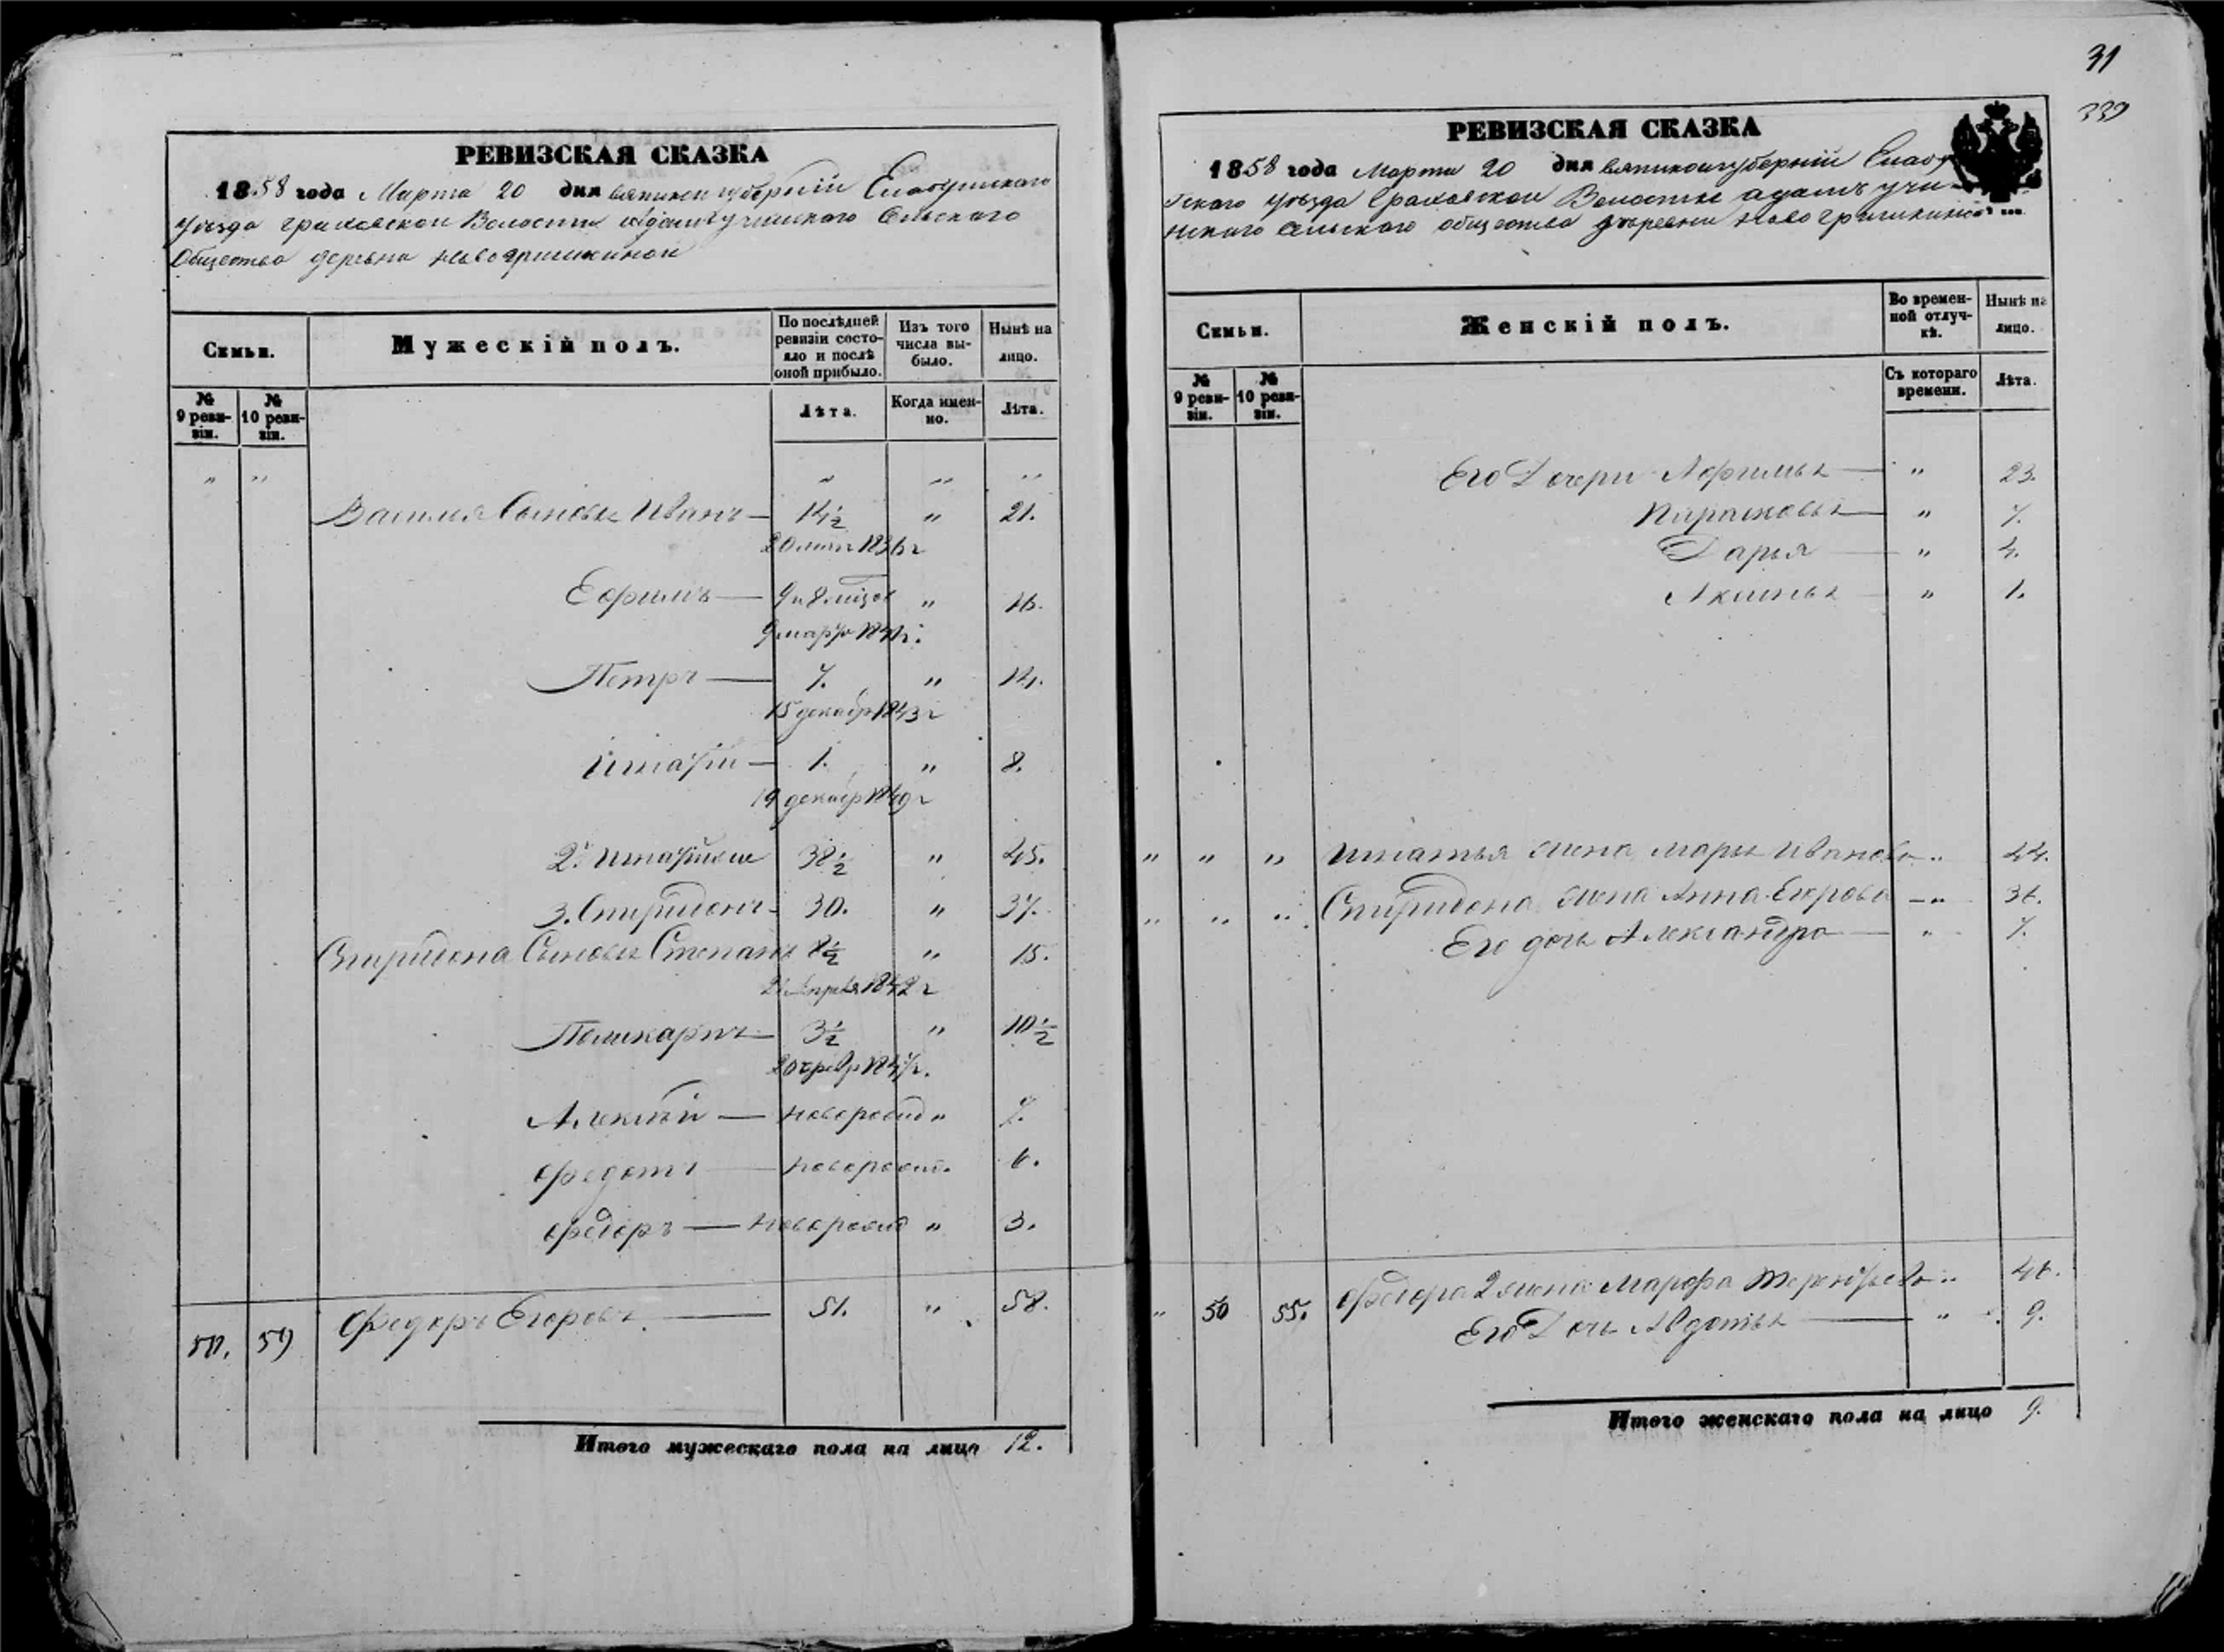 РЕВИЗСКАЯ СКАЗКА
1858 года Марта 20 дня вятской губерніи Елабужскаго
Уѣзда граховской Волости Сельскаго
Общества деревни Новогришкиной
Семьи.
Мужескій полъ.
По послѣдней ревизіи состояло и послѣ оной прибыло.
Изъ того числа выбыло.
Нынѣ на лицо.
№ 9 ревизіи.
№ 10 ревизіи.
Лѣта.
Когда именно.
Лѣта.
" " " " "
Василья Сыновья Иванъ — 14½ " 21.
Ефимъ — 9 и 8 мѣсяц " 16.
Петръ — 7. " 14.
15 декабр 1843 г
1. " 8.
19 декабр 1849 г
2й 38½ " 45.
3. Спиридонъ 30. " 37.
Спиридона Сыновья Степанъ 8½ " 15.
Поликарпъ — 3½ " 10½
Алексѣй — новорожд " 7.
Федотъ — новорожд. 6.
Федоръ — новорожд " 3.
50. 59 Федоръ Егоровъ — 51. " 58.
Итого мужескаго пола на лицо 12.
31
339
РЕВИЗСКАЯ СКАЗКА
1858 года Марта 20 дня вятской губерніи Елабу
Уѣзда Граховской Волости адамъ учи-
нскаго Сельскаго общества деревни Новогришкиной
Семьи.
Женскій полъ.
Во временной отлучкѣ.
Нынѣ на лицо.
№ 9 ревизіи.
№ 10 ревизіи.
Съ котораго времени.
Лѣта.
Его Дочери — " 23.
Парасковья — " 7.
Дарья — " 4.
Аксинья — " 1.
" " " Игнатья жена Марья Иванова " 44.
" " " Спиридона жена Анна Егорова — " 36.
Его дочь Александра — " 7.
" 50 55. Федора 2 жена Марфа " 46.
Его Дочь Авдотья — " 9.
Итого женскаго пола на лицо 9.